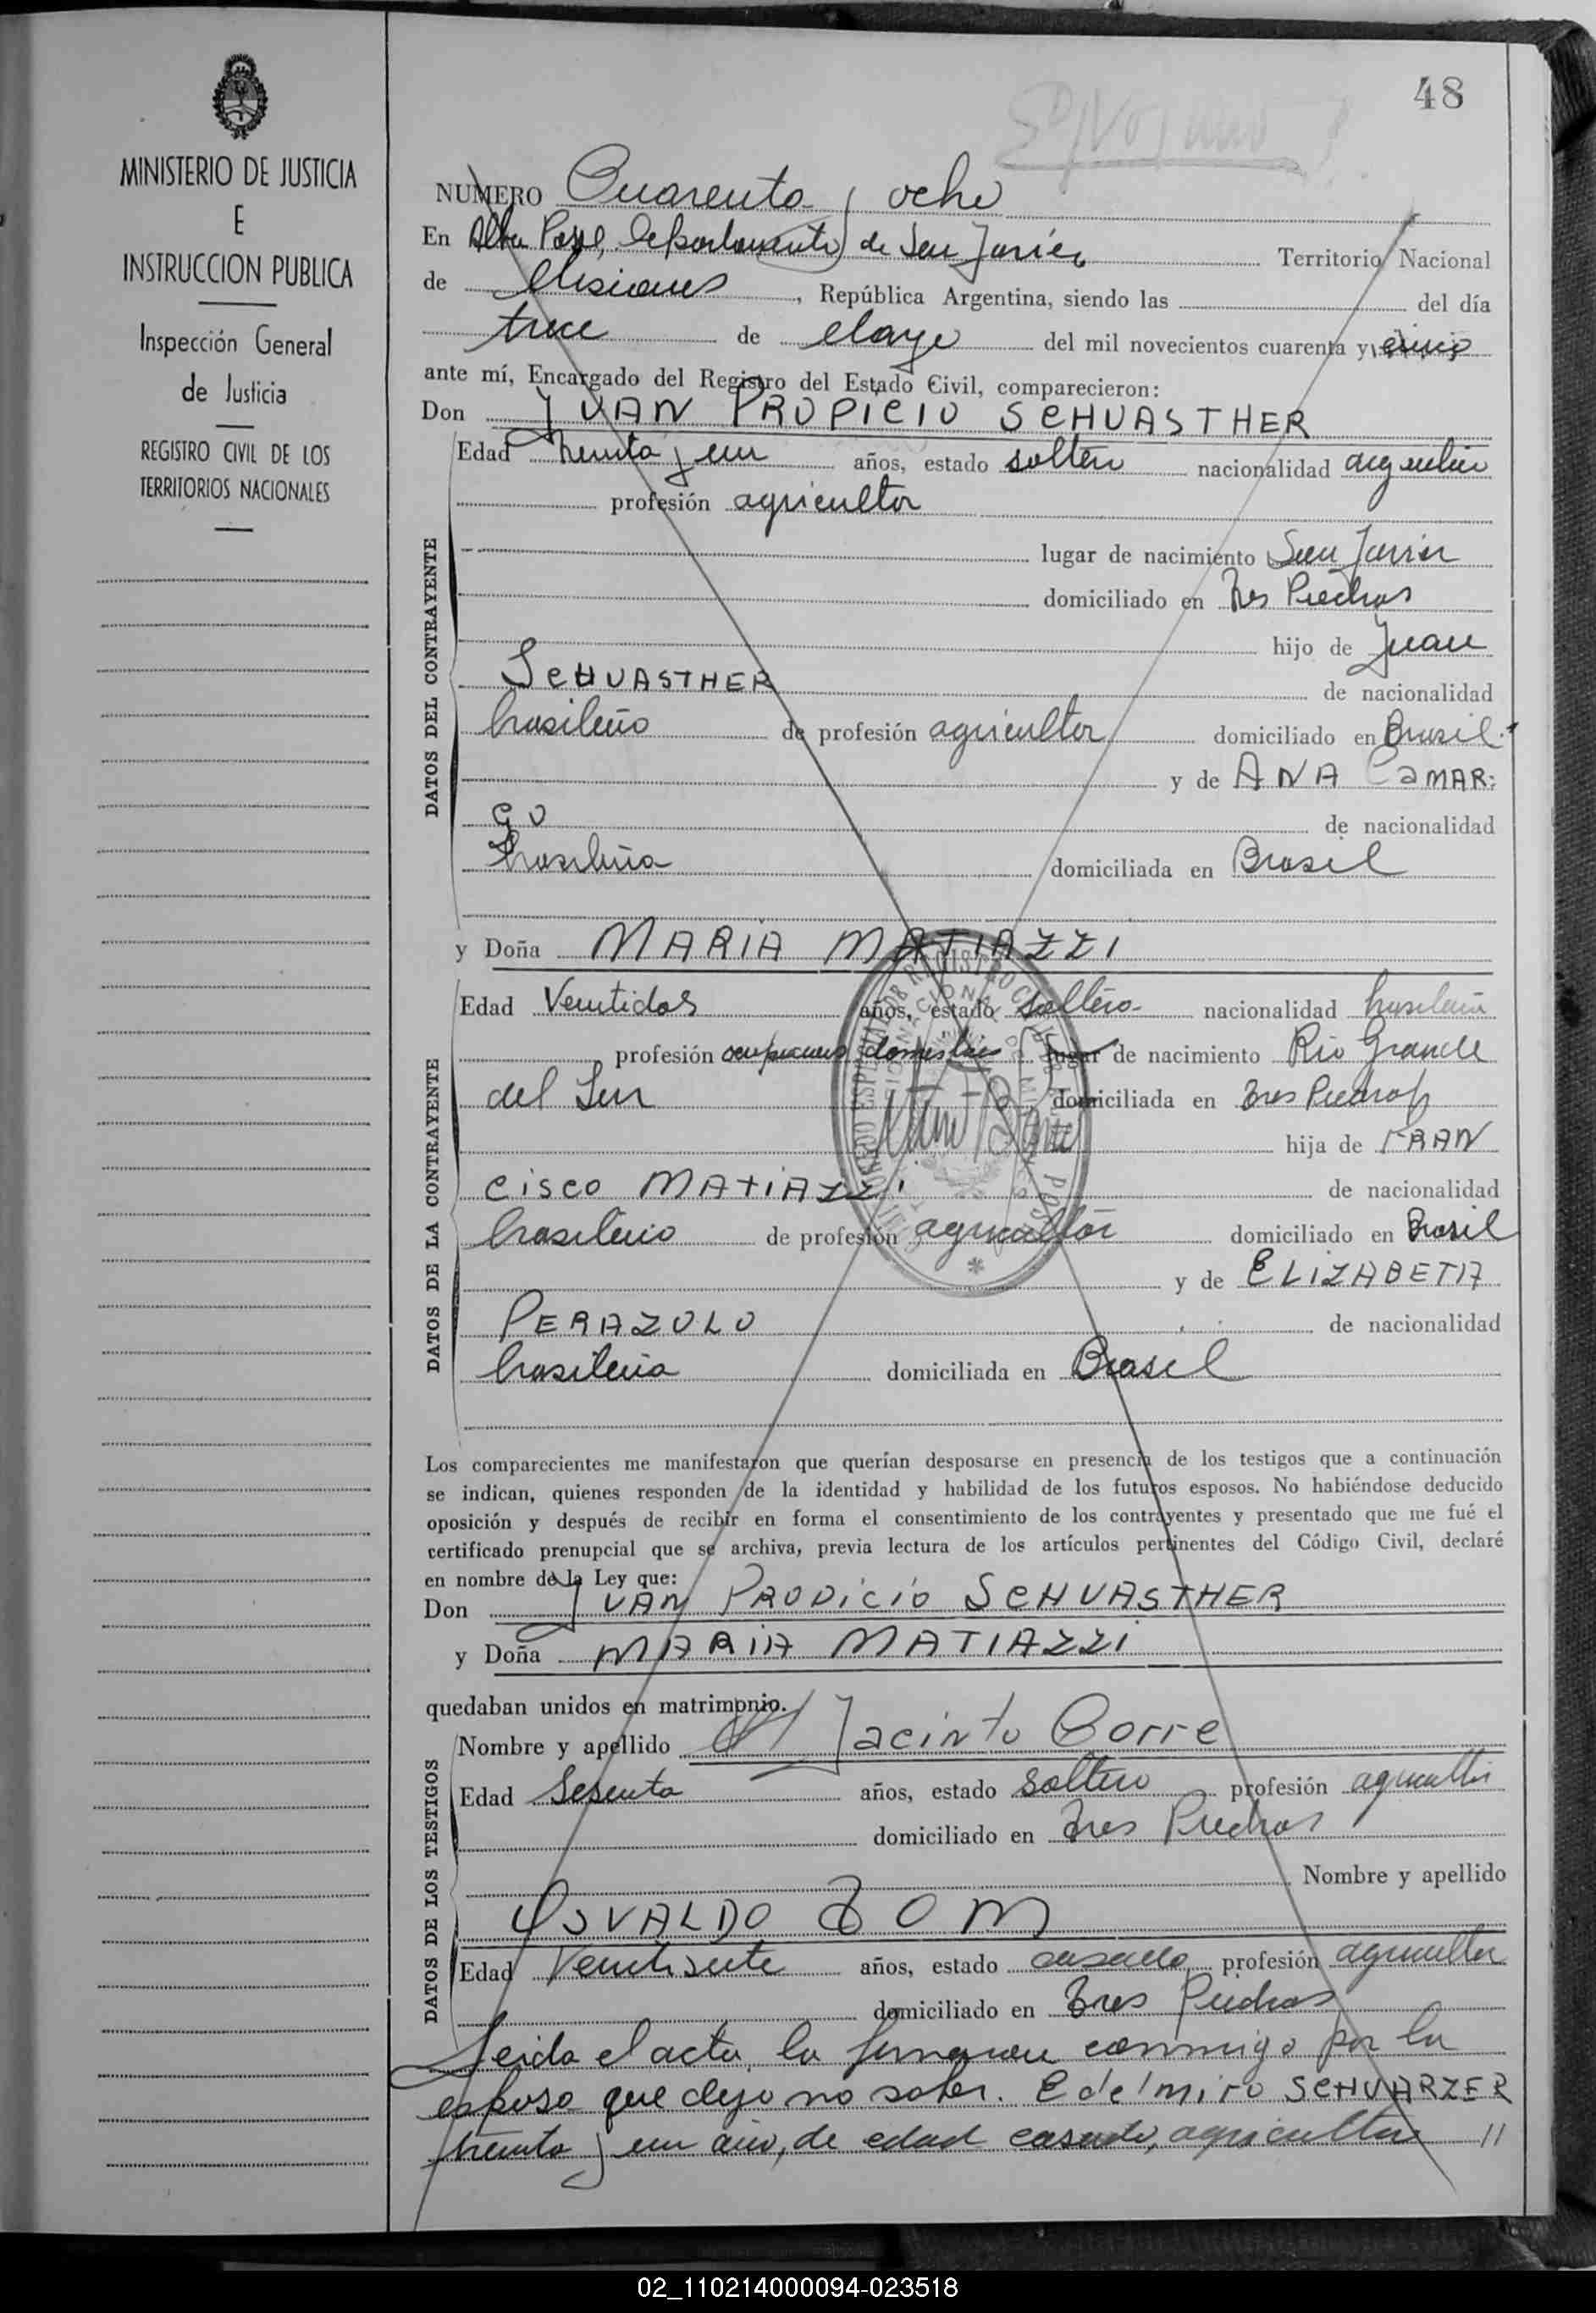 48
MINISTERIO DE JUSTICIA
E
INSTRUCCION PUBLICA
Inspección General
de Justicia
REGISTRO CIVIL DE LOS
TERRITORIOS NACIONALES
NUMERO Cuarenta y ocho
En Alba Posse, departamento de San Javier Territorio Nacional
de Misiones, República Argentina, siendo las del día
trece de Mayo del mil novecientos cuarenta y
ante mí, Encargado del Registro del Estado Civil, comparecieron:
Don JUAN PROPICIO SCHUASTHER
Edad treinta y un años, estado soltero nacionalidad argentino
profesión agricultor
lugar de nacimiento San Javier
domiciliado en Tres Piedras
hijo de Juan
SCHUASTHER de nacionalidad
brasileño de profesión agricultor domiciliado en Brasil
y de ANA CAMAR-
GO de nacionalidad
brasileña domiciliada en Brasil
DATOS DEL CONTRAYENTE
y Doña MARIA MATIAZZI
Edad Veintidos años, estado soltera nacionalidad brasileña
profesión domesticas lugar de nacimiento Rio Grande
del Sur domiciliada en Tres Piedras
hija de FRAN
CISCO MATIAZZI de nacionalidad
brasileño de profesión agricultor domiciliado en Brasil
y de ELIZABETA
PERAZOLO de nacionalidad
brasileña domiciliada en Brasil
DATOS DE LA CONTRAYENTE
Los comparecientes me manifestaron que querían desposarse en presencia de los testigos que a continuación
se indican, quienes responden de la identidad y habilidad de los futuros esposos. No habiéndose deducido
oposición y después de recibir en forma el consentimiento de los contrayentes y presentado que me fué el
certificado prenupcial que se archiva, previa lectura de los artículos pertinentes del Código Civil, declaré
en nombre de la Ley que:
Don JUAN PROPICIO SCHUASTHER
y Doña MARIA MATIAZZI
quedaban unidos en matrimonio.
Nombre y apellido Jacinto Corre
Edad Sesenta años, estado soltero profesión agricultor
domiciliado en Tres Piedras
Nombre y apellido
OSVALDO TOM
Edad Veintisiete años, estado casado, profesión agricultor
domiciliado en Tres Piedras
DATOS DE LOS TESTIGOS
Leida el acta, la firmaron conmigo por la
esposa que dijo no saber. Edelmiro SCHVARZER
treinta y un año, de edad casado, agricultor //
02_110214000094-023518